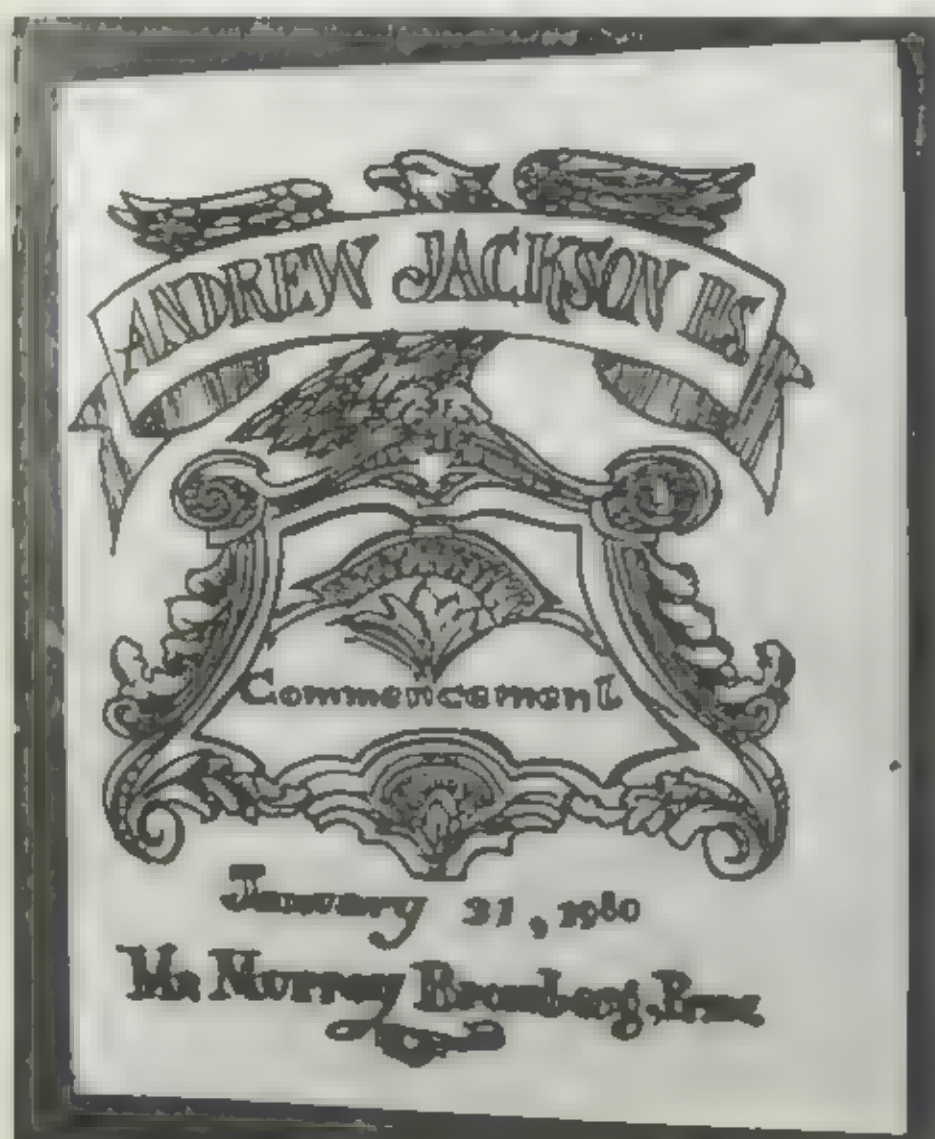 ANDREW JACKSON HS
Commencement
January 31, 1980
Mr. Murray Bromberg, Prin.